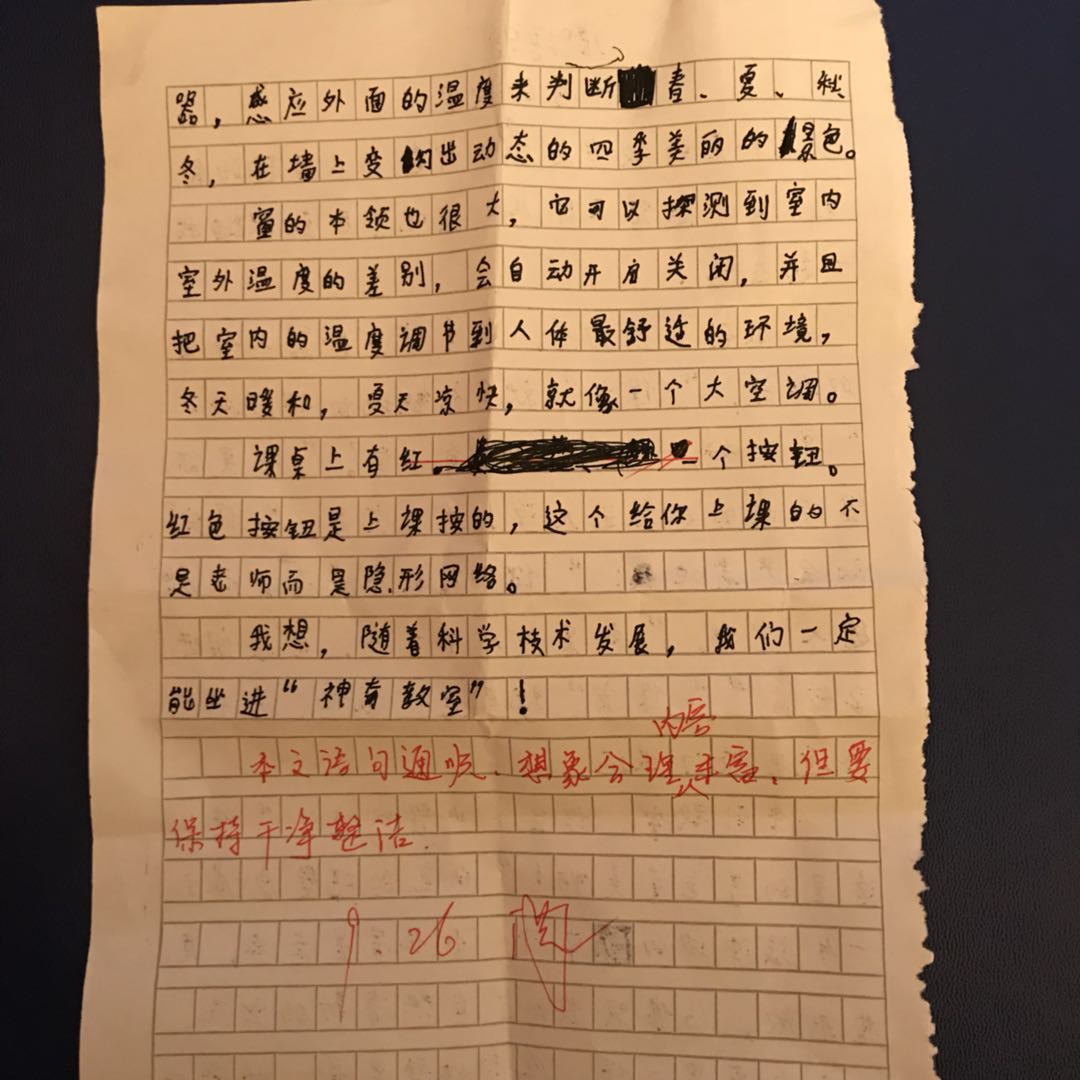 器，感应外面的温度来判断春、夏、秋
冬，在墙上变幻出动态的四季美丽的景色。
窗的本领也很大，它可以探测到室内
室外温度的差别，会自动开启关闭，并且
把室内的温度调节到人体最舒适的环境，
冬天暖和，夏天凉快，就像一个大空调。
课桌上有红一个按钮。
红色按钮是上课按的，这个给你上课的不
是老师而是隐形网络。
我想，随着科学技术发展，我们一定
能坐进“神奇教室”！
内容
本文语句通顺、想象合理丰富，但要
保持干净整洁.
9.26